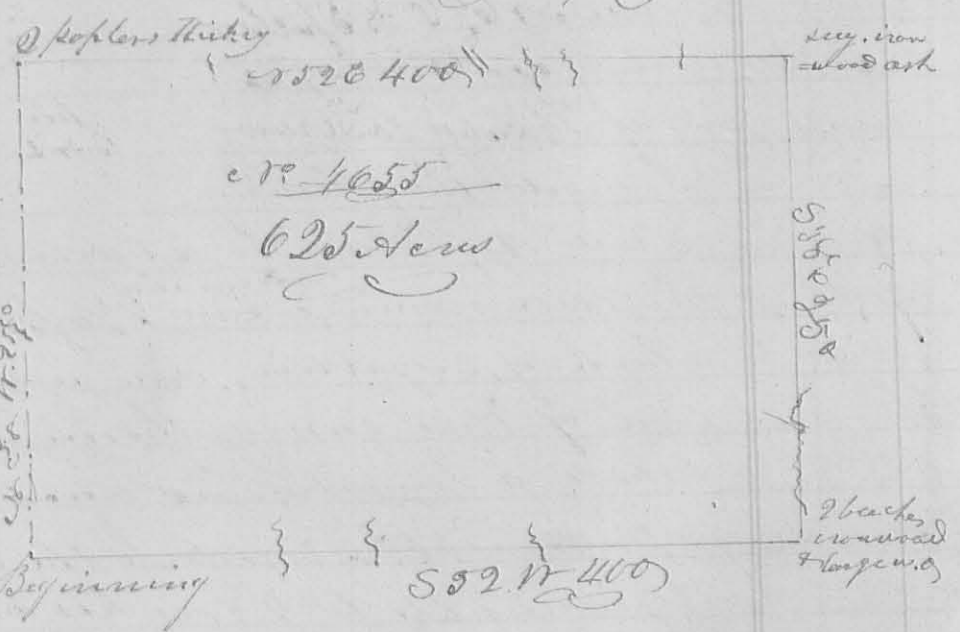 2 poplers Hickry
N52E 400
sug. iron
=wood ash
No 4655
625 Acres
S38E 250
N38W 250
2 beaches
ironwood
& large w.o
Beginning
S52.W 400